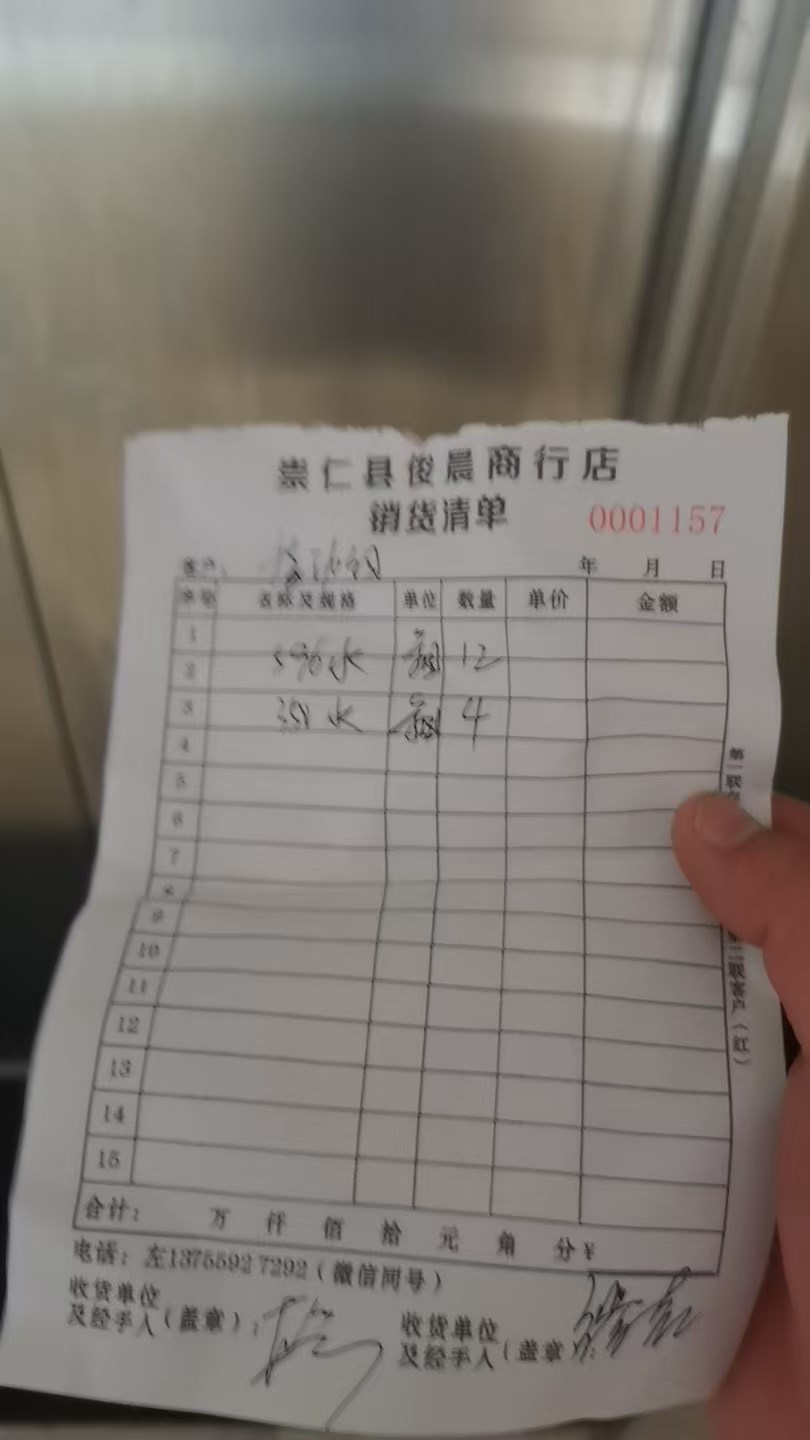 崇仁县俊晨商行店
销货清单 0001157
客户: 年 月 日
序号 名称及规格 单位 数量 单价 金额
1
2 596水 箱 12
3 358水 箱 4
4
5
6
7
8
9
10
11
12
13
14
15
合计: 万 仟 佰 拾 元 角 分 ¥
电话: 左13755927292 (微信同号)
收货单位 收货单位
及经手人(盖章): 及经手人(盖章):
第一联
第二联客户(红)